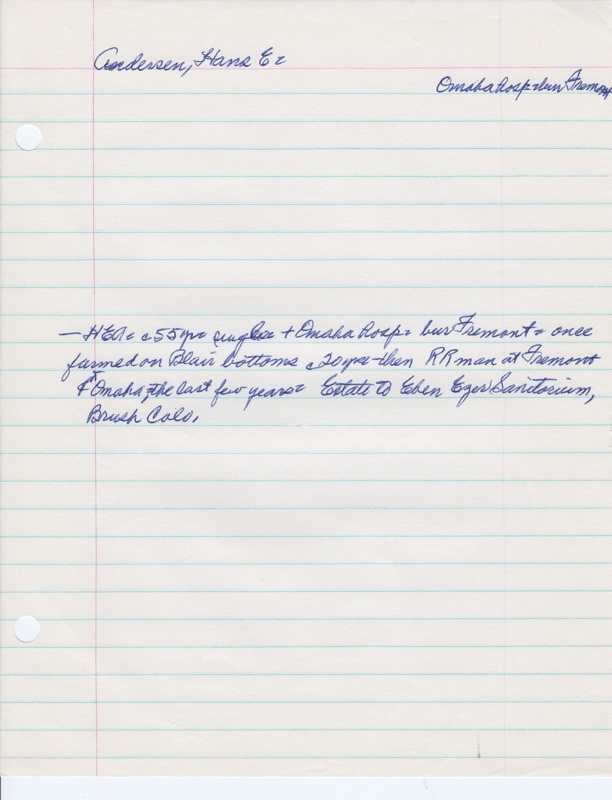 Andersen, Hans E =
Omaha Hosp = bur Fremont
— HEA = c 55 yrs = single = + Omaha Hosp = bur Fremont = once
farmed on Blair bottoms c 20 yrs - then RR man at Fremont
& at Omaha the last few years = Estate to Eben Ezer Sanitorium,
Brush Colo.